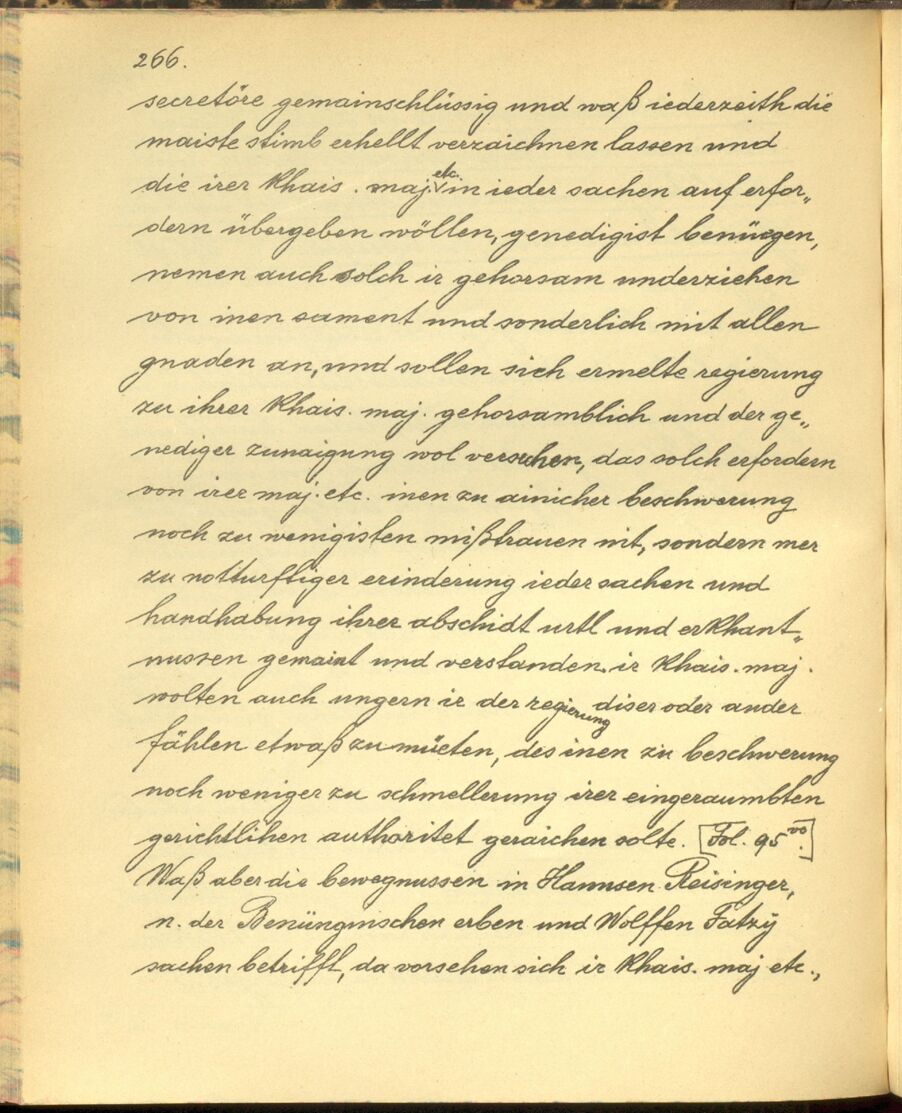 266.
secretöre gemainschlüssig und waß iederzeith die
maiste stimb erhellt verzaichnen lassen und
die irer Khais. maj. etc. in ieder sachen auf erfor„
dern übergeben wöllen, genedigist benüegen,
nemen auch solch ir gehorsam underziehen
von inen sament und sonderlich mit allen
gnaden an, und sollen sich ermelte regierung
zu ihrer Khais. maj. gehorsamblich und der ge„
nediger zunaigung wol versehen, das solch erfordern
von irer maj. etc. inen zu ainicher beschwerung
noch zu wenigisten mißtrauen nit, sondern mer
zu notturfftiger erinderung ieder sachen und
handhabung ihrer abschidt urtl und erkhant„
nussen gemaint und verstanden. ir Khais. maj.
wolten auch ungern ir der regierung diser oder ander
fählen etwaß zu müeten, des inen zu beschwerung
noch weniger zu schmellerung irer eingeraumbten
gerichtlihen authoritet geraichen solte. [Fol. 95 vo.]
Waß aber die bewegnussen in Hannsen Reisinger,
n. der Benüngnischen erben und Wolffen Fatzÿ
sachen betrifft, da vorsehen sich ir Khais. maj etc.,